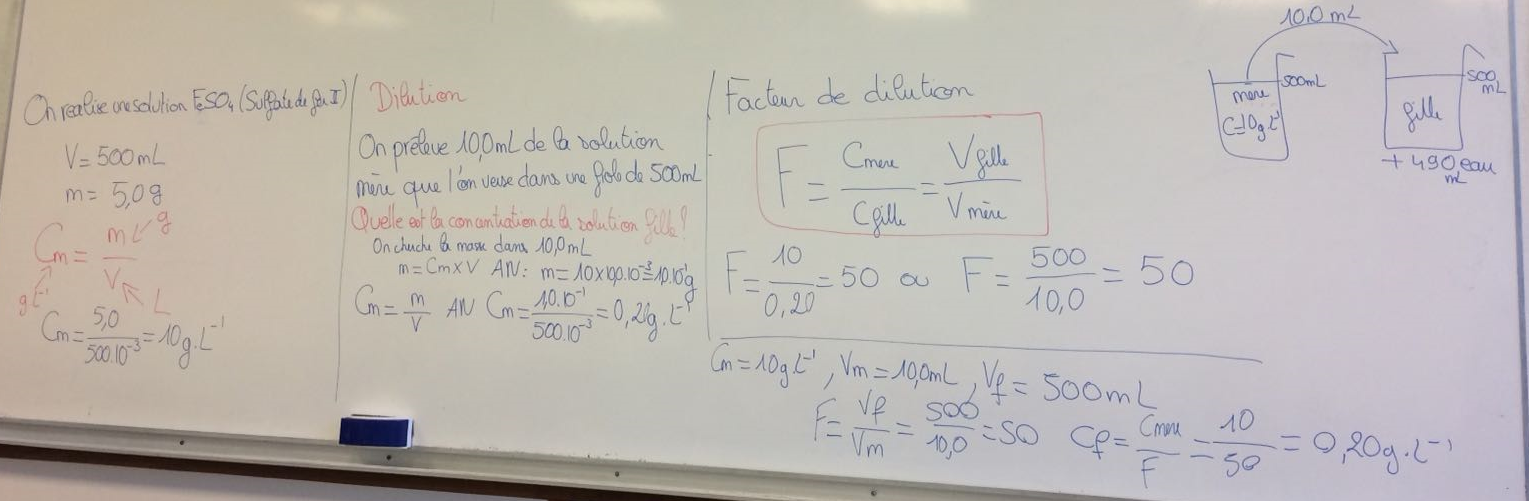 On realise une solution FeSO4 (Sulfate de fer II)
V = 500mL
m = 5,0g
Cm = m/V
g
g.L⁻¹
L
Cm = 5,0/500.10⁻³ = 10g.L⁻¹
Dilution
On prélève 10,0mL de la solution
mère que l'on verse dans une fiole de 500mL
Quelle est la concentration de la solution fille?
On cherche la masse dans 10,0mL
m = Cm x V AN: m = 10 x 10,0.10⁻³ = 1,0.10⁻¹g
Cm = m/V AN Cm = 1,0.10⁻¹/500.10⁻³ = 0,20g.L⁻¹
Facteur de dilution
F = Cmere/Cfille = Vfille/Vmère
F = 10/0,20 = 50 ou F = 500/10,0 = 50
Cm = 10g.L⁻¹, Vm = 10,0mL, Vf = 500mL
F = Vf/Vm = 500/10,0 = 50 Cf = Cmere/F = 10/50 = 0,20g.L⁻¹
10,0 mL
mere
C=10g.L⁻¹
500mL
fille
500
mL
+ 490 eau
mL